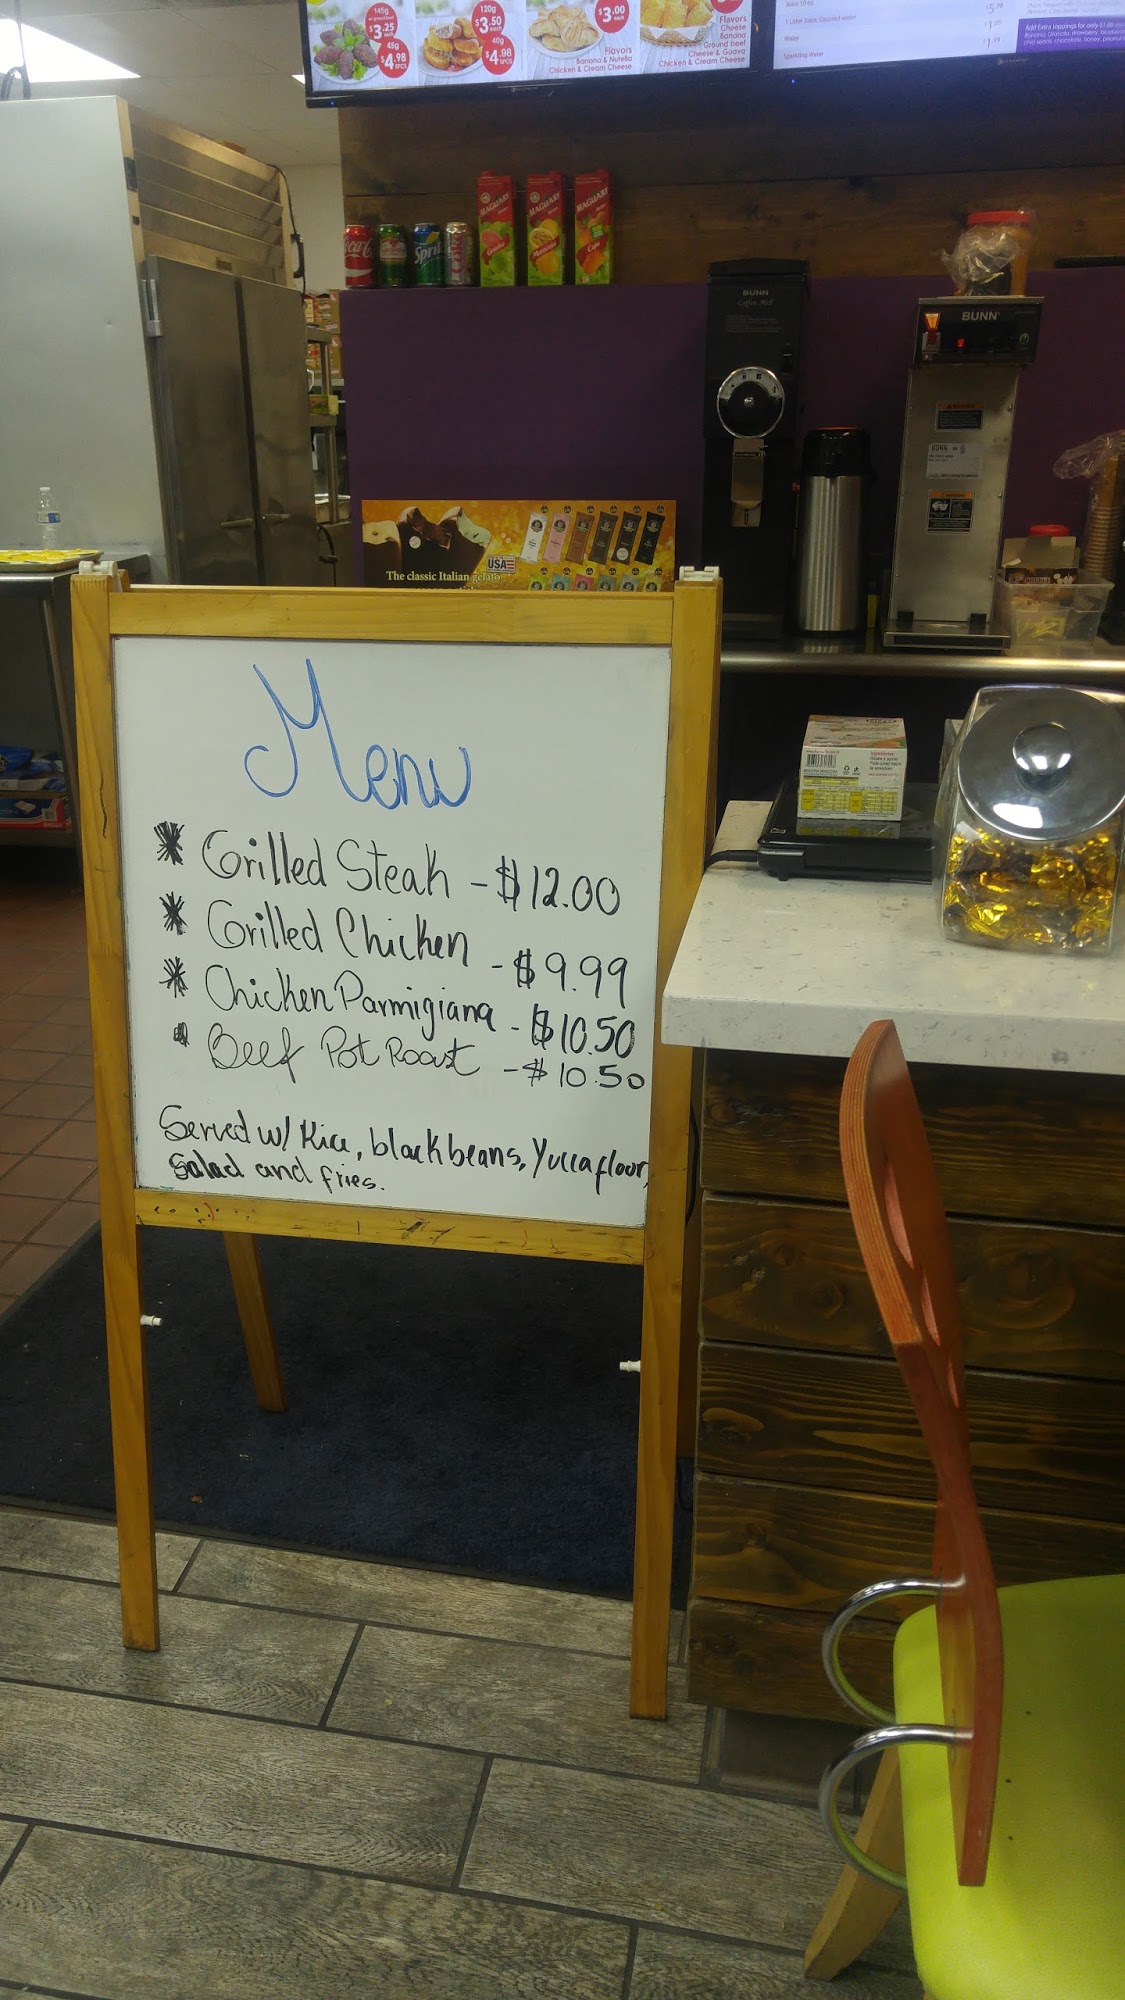 145g
$3.25
each
45g
$4.98
5PCS
120g
$3.50
each
40g
$4.98
5PCS
$3.00
each
Flavors
Banana & Nutella
Chicken & Cream Cheese
Flavors
Cheese
Banana
Ground beef
Cheese & Guava
Chicken & Cream Cheese
Water
Sparkling Water
Sprite
MAGUARY
MAGUARY
MAGUARY
Caju
BUNN
Coffee Mill
BUNN
USA
The classic Italian gelato
Menu
Grilled Steak - $12.00
Grilled Chicken - $9.99
Chicken Parmigiana - $10.50
Beef Pot Roast - $10.50
Served w/ Rice, black beans, Yucca flour,
Salad and fries.